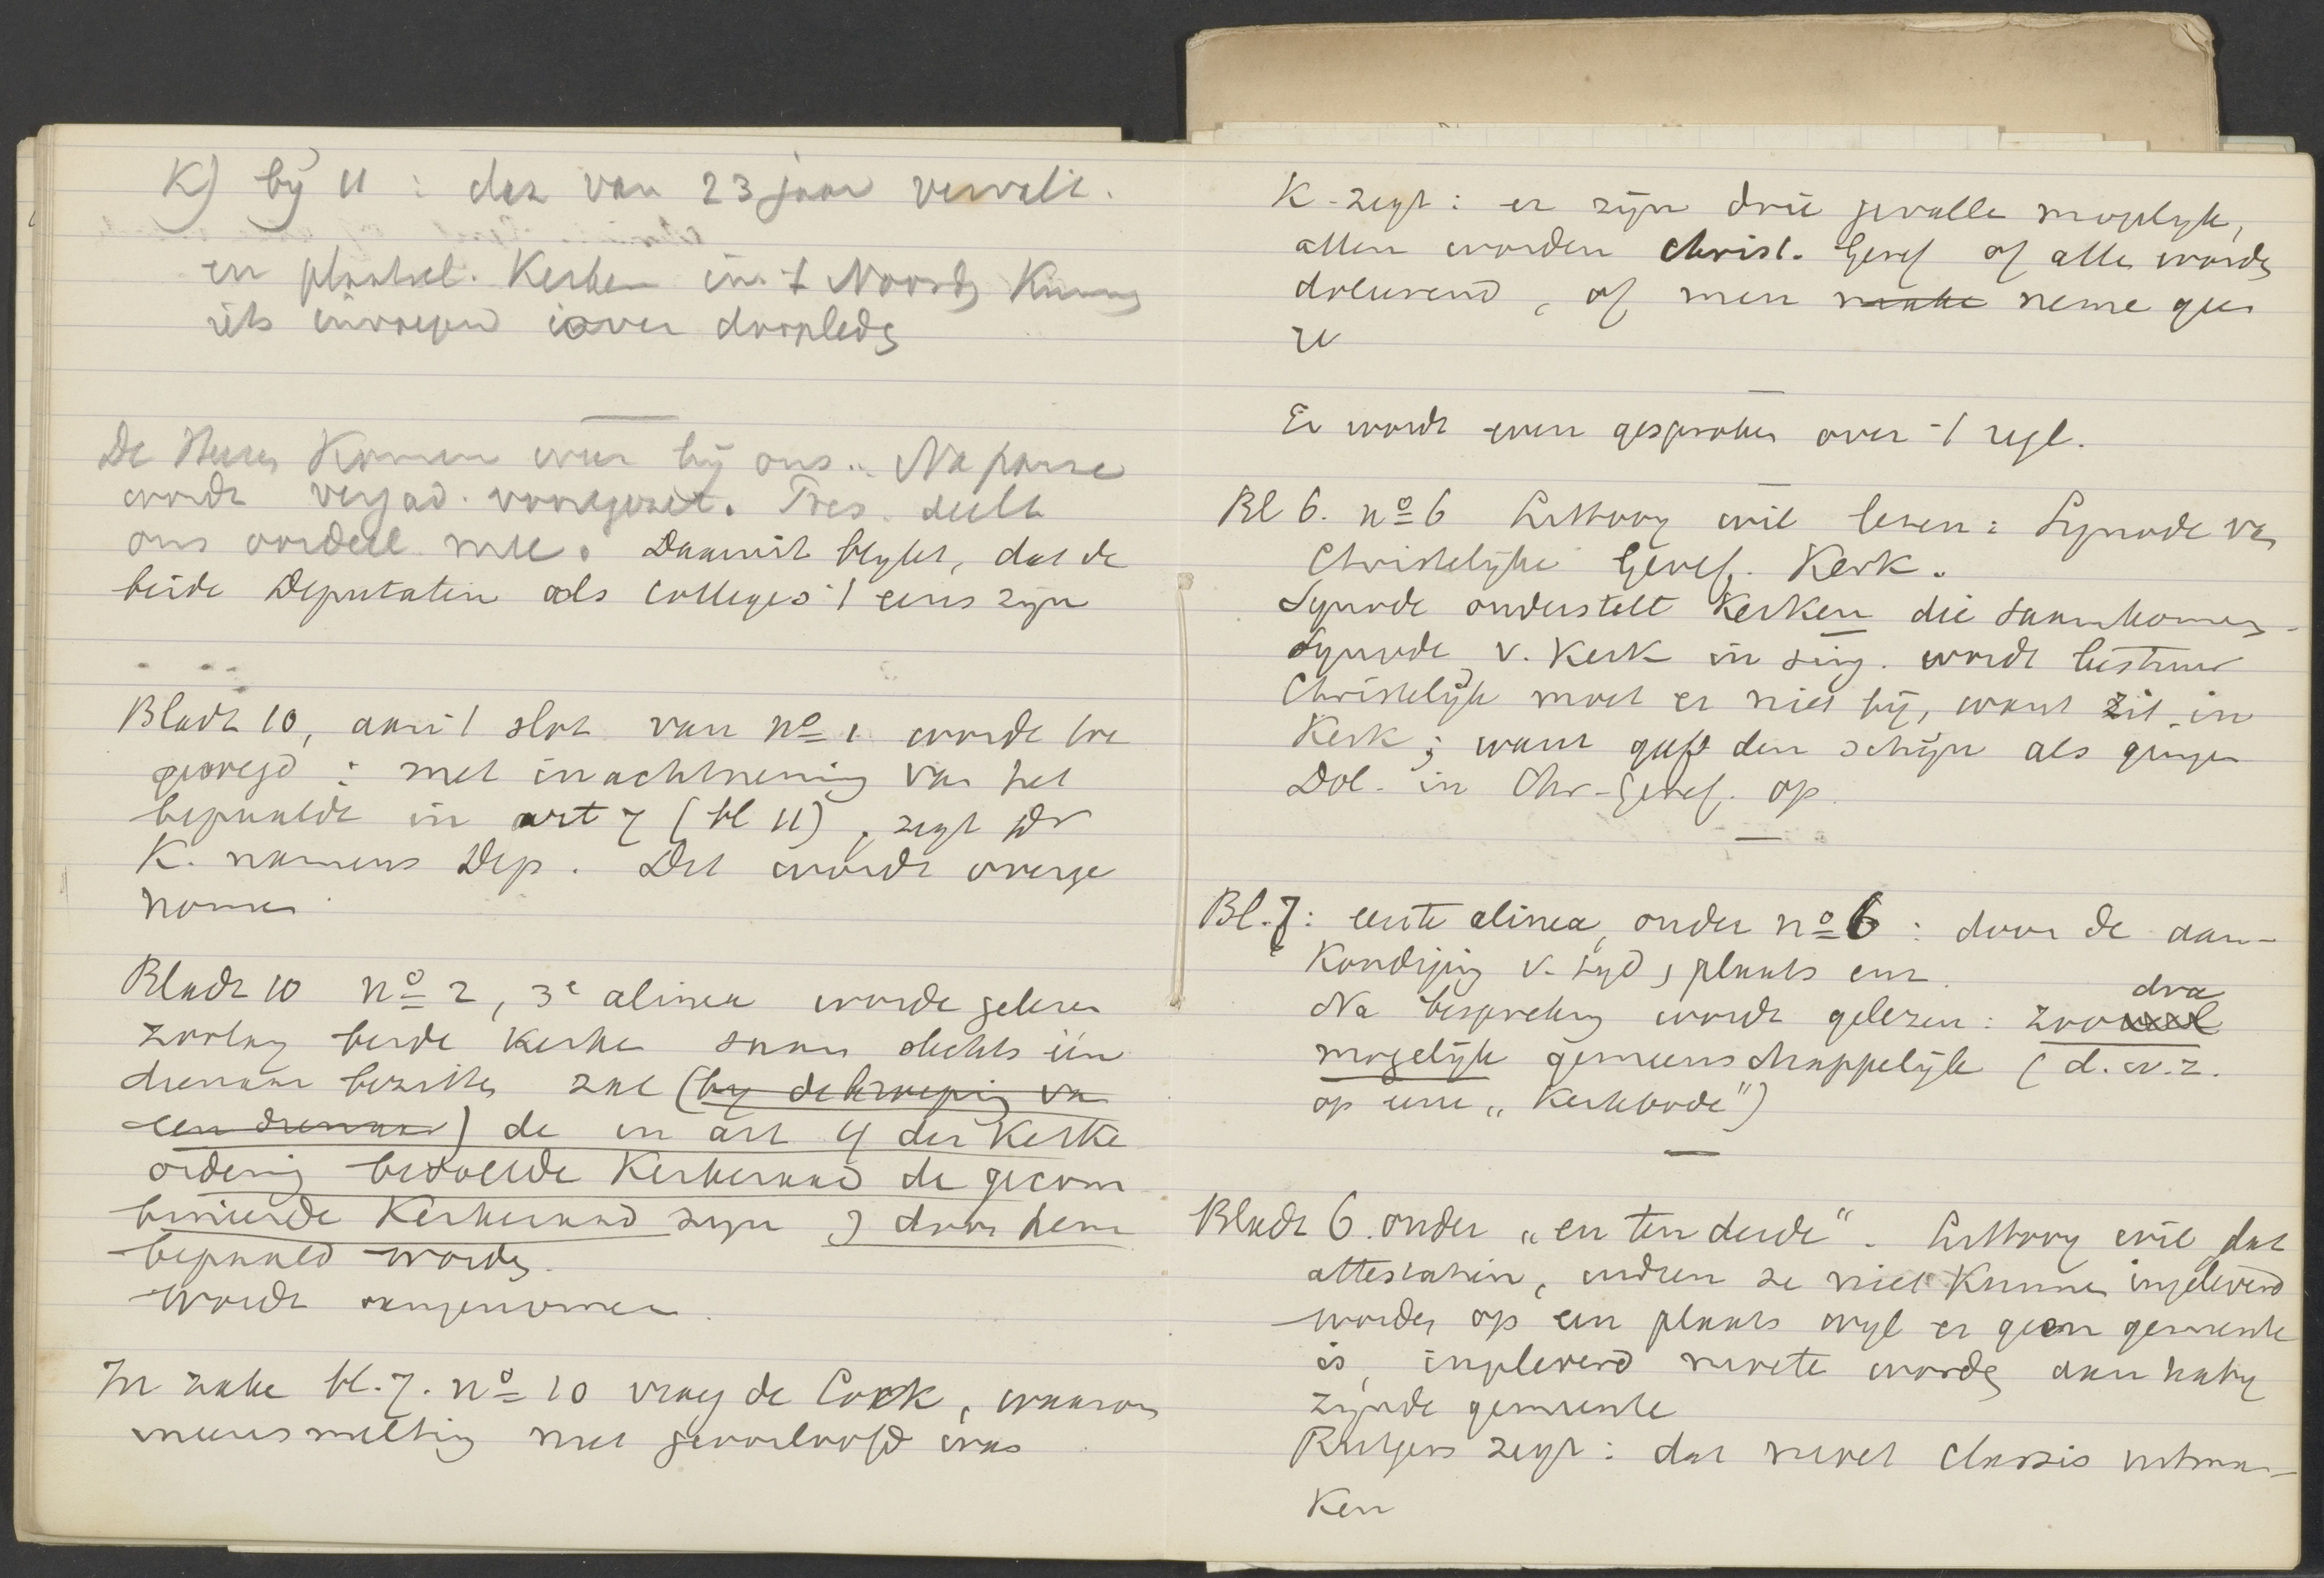 K) bij 11: dat van 23 jaar vervalt.
en plaatsel. Kerken in 't Noorden Kunnen
iets invoegen over doopleden
De Heeren Komen weer bij ons. Na pauze
wordt vergad. voortgezet. Pres. deelt
ons oordeel mee. Daaruit blijkt, dat de
beide Deputatin als colleges 't eens zijn
Bladz 10, aan 't slot van no 1 wordt toe
gevoegd: met inachtneming van het
bepaalde in art 7 (bl 11), zegt Dr
K. namens Dep. Dit wordt overge
nomen
Bladz 10 no 2, 3e alinea worde gelezen
Zoolang beide Kerken saam slechts één
dienaar bezitten zal (by de beroeping van
een dienaar) de in art 4 der Kerke
ordening bedoelde Kerkeraad de gecom
bineerde Kerkeraad zijn & door hem
bepaald worden.
Wordt aangenomen.
In zake bl. 7. no 10 vraag de Cock, waarom
ineensmelting niet geoorloofd was
K. zegt: er zijn drie gevallen mogelijk,
allen worden Christ. Geref of alle worden
doleerend, of men make neme geen
ze
Er wordt even gesproken over 't regl.
Bl 6. no 6 Littooy wil lezen: Synode van
Christelijke Geref. Kerk.
Synode onderstelt Kerken die saamkomen.
Synode v. Kerk in sing. wordt bestuur
Christelijk moet er niet bij, want zit in
Kerk; want gaf den schijn als gingen
Dol. in Chr-Geref. op.
Bl. 7: eerste alinea, onder no 6: door de aan-
Kondiging v. tijd, plaats enz.
Na bespreking wordt gelezen: zoo veel dra
mogelijk gemeenschappelijk (d.w.z.
op eene „Kerkbode")
Bladz 6. onder „en ten derde". Littooy wil dat
attestatien, indien ze niet Kunnen ingeleverd
worden op een plaats wijl er geen gemeente
is, ingeleverd moete worden aan naby
zijnde gemeente
Rutgers zegt: dat moet classis uitma-
Ken